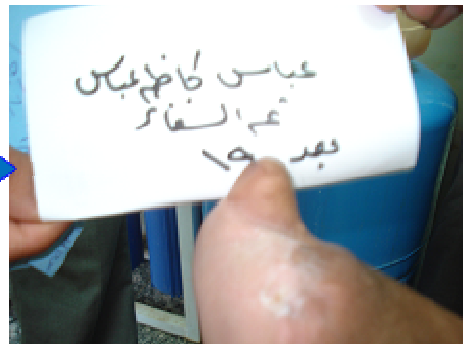 عباس كاظم عباس
تم الشفاء
بعد ١٩